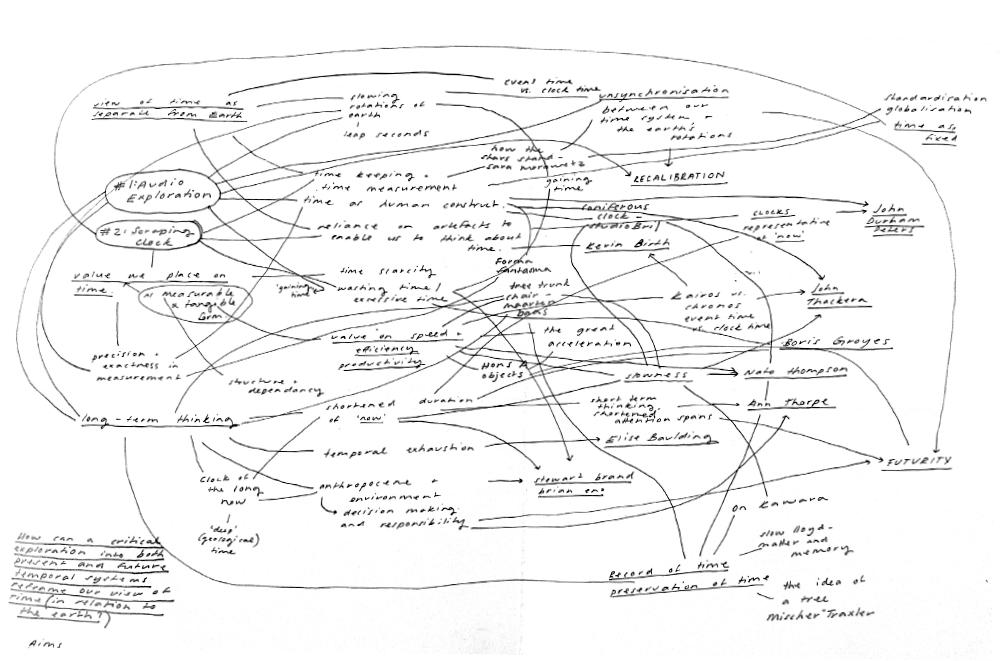 event time
vs. clock time
view of time as
separate from Earth
slowing
rotations of
earth
leap seconds
unsynchronisation
between our
time system +
the earth's
rotations
standardisation
globalisation
time as
fixed
how the
stars stand -
sara morawetz
gaining
time
RECALIBRATION
#1: Audio
Exploration
time keeping +
time measurement
time as human construct.
#2: Scraping
Clock
reliance on artefacts to
enable us to think about
time.
clock -
studio
Kevin Birth
CLOCKS
representative
of 'now'
John
Durham
Peters
value we place on
time.
as measurable
+ tangible
form
time scarcity
'gaining
time'
wasting time /
excessive time
Forma
fantasma
tree trunk
chair -
maarten
baas
Kairos vs.
chronos
event time
vs. clock time
John
Thackera
value on speed +
efficiency
productivity
the great
acceleration
Boris Groyes
precision +
exactness in
measurement
structure +
dependancy
objects
slowness
Nato Thompson
long-term thinking
shortened
of 'now'
duration
short term
thinking
shortened
attention spans
Ann Thorpe
temporal exhaustion
Elise Boulding
FUTURITY
clock of
the long
now
anthropocene +
environment
decision making
and responsibility
stewart brand
brian eno
'deep'
(geological)
time
on Kawara
slow
matter and
memory
How can a critical
exploration into both
present and future
temporal systems
reframe our view of
time (in relation to
the earth?)
Record of time
preservation of time
the idea of
a tree
Mischer'Traxler
Aims